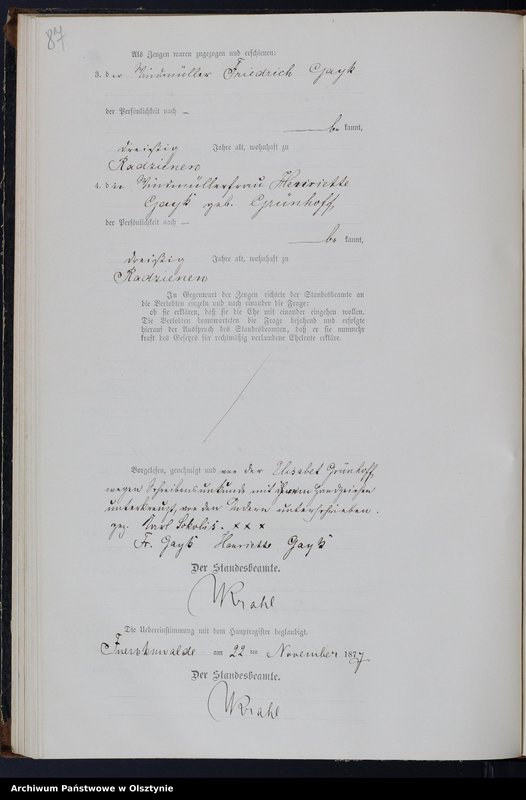 87
Als Zeugen waren zugezogen und erschienen:
3. der Windmüller Friedrich Gayk
der Persönlichkeit nach —
be kannt,
dreißig Jahre alt, wohnhaft zu
Radzienen
4. die Windmüllerfrau Henriette
Gayk geb. Grünhoff,
der Persönlichkeit nach —
be kannt,
dreißig Jahre alt, wohnhaft zu
Radzienen
In Gegenwart der Zeugen richtete der Standesbeamte an
die Verlobten einzeln und nach einander die Frage:
ob sie erklären, daß sie die Ehe mit einander eingehen wollen.
Die Verlobten beantworteten die Frage bejahend und erfolgte
hierauf der Ausspruch des Standesbeamten, daß er sie nunmehr
kraft des Gesetzes für rechtmäßig verbundene Eheleute erkläre.
Vorgelesen, genehmigt und von der Elisabet Grünhoff,
wegen Schreibensunkunde mit ihrem Handzeichen
unterkreuzt, von den Andern unterschrieben.
gez. Karl Sokolis. × × ×
Fr. Gayk Henriette Gayk
Der Standesbeamte.
WKrahl
Die Uebereinstimmung mit dem Hauptregister beglaubigt.
Fuerstenwalde am 22 ten November 1877
Der Standesbeamte.
WKrahl
Archiwum Państwowe w Olsztynie